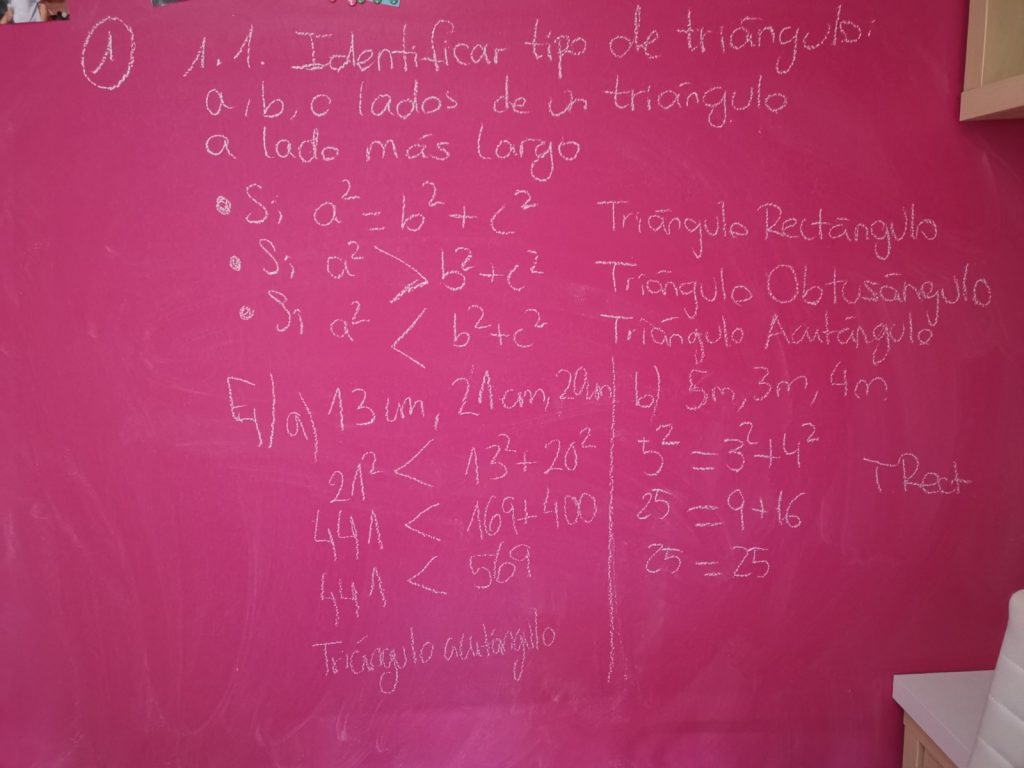 1 1.1. Identificar tipo de triángulo:
a, b, c lados de un triángulo
a lado más largo
• Si a² = b² + c² Triángulo Rectángulo
• Si a² > b² + c² Triángulo Obtusángulo
• Si a² < b² + c² Triángulo Acutángulo
Ej/ a) 13 cm, 21 cm, 20 cm
21² < 13² + 20²
441 < 169 + 400
441 < 569
Triángulo acutángulo
b) 5m, 3m, 4m
5² = 3² + 4²
T Rect
25 = 9 + 16
25 = 25